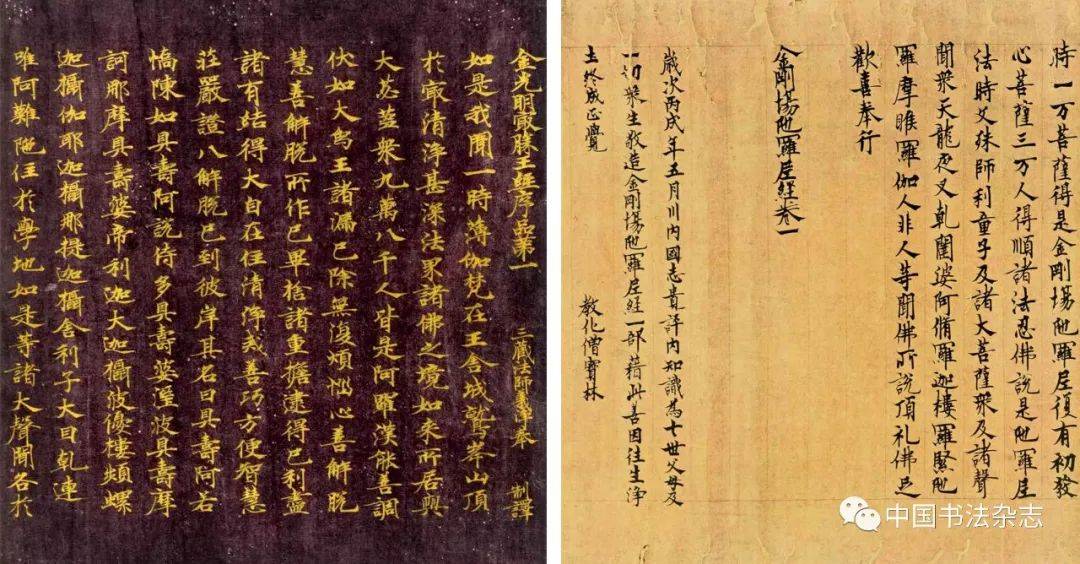 金光明最勝王經序品第一 三藏法師義淨奉 制譯
如是我聞一時薄伽梵在王舍城鷲峯山頂
於最清淨甚深法界諸佛之境如來所居與
大苾蒭衆九萬八千人皆是阿羅漢能善調
伏如大象王諸漏已除無復煩惱心善解脫
慧善解脫所作已畢捨諸重擔逮得已利盡
諸有結得大自在住清淨戒善巧方便智慧
莊嚴證八解脫已到彼岸其名曰具壽阿若
憍陳如具壽阿說侍多具壽婆濕波具壽摩
訶那摩具壽婆帝利迦大迦攝波優樓頻螺
迦攝伽耶迦攝那提迦攝舍利子大目乾連
唯阿難陁住於學地如是等諸大聲聞各於
時一万菩薩得是金剛場陁羅尼復有初發
心菩薩三万人得順諸法忍佛說是陁羅尼
法時文殊師利童子及諸大菩薩衆及諸聲
聞衆天龍夜叉乾闥婆阿脩羅迦樓羅緊陁
羅摩睺羅伽人非人等聞佛所說頂礼佛足
歡喜奉行
金剛場陁羅尼經卷一
歲次丙戌年五月川內國志貴評內知識為七世父母及
一切衆生敬造金剛場陁羅尼経一部藉此善因往生淨
土終成正覺
教化僧寶林
中国书法杂志